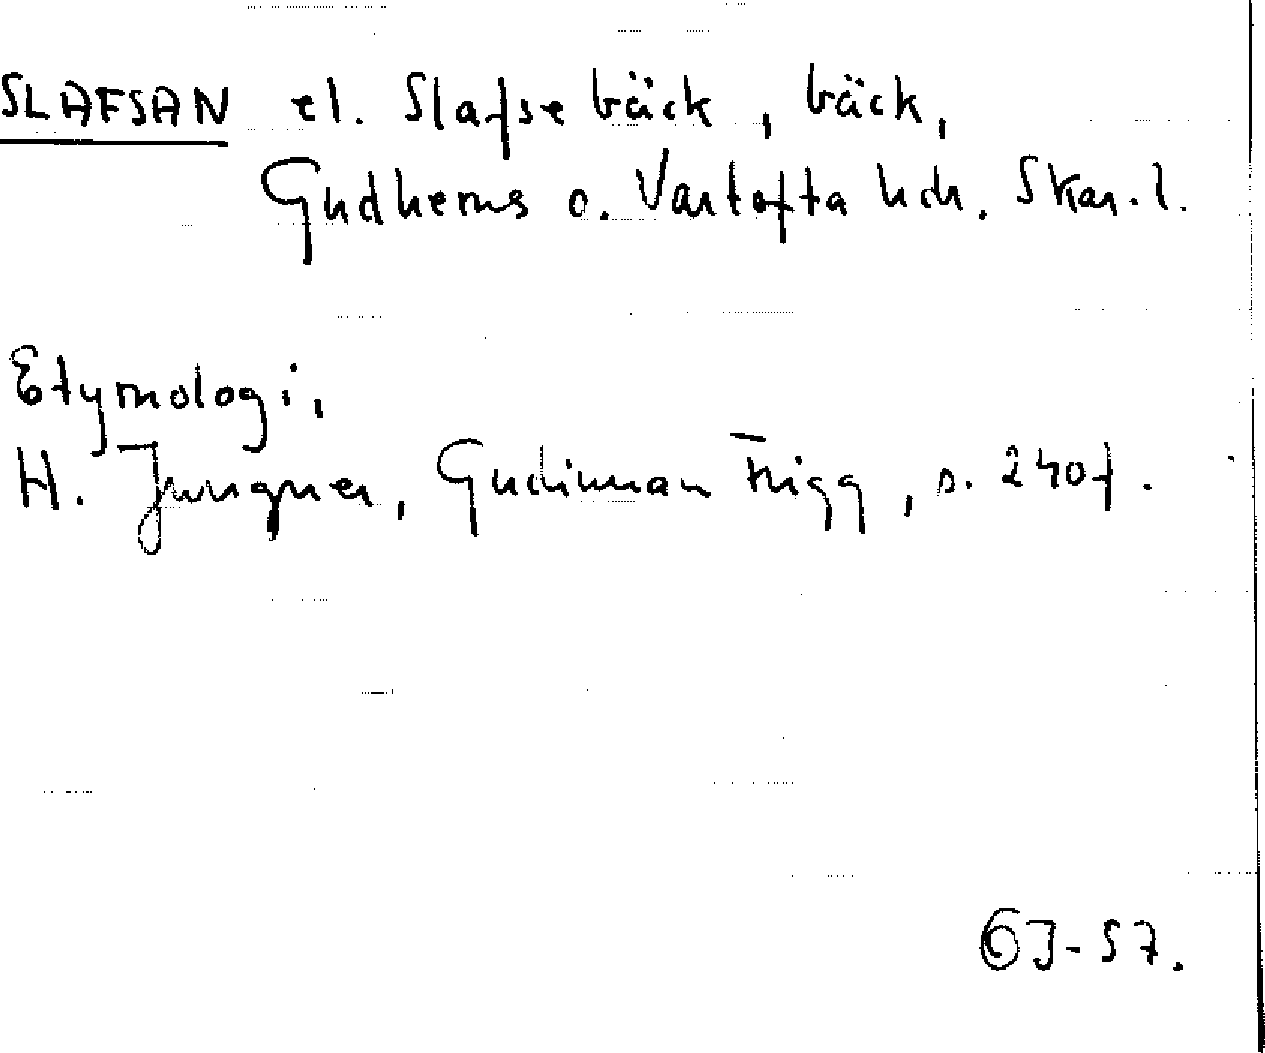 SLAFSAN el. Slafsebäck, bäck,
Gudhems o. Vartofta hdr. Skar. l.
Etymologi,
H. Jungner, Gudinnan Frigg, s. 240 f.
GJ-57.